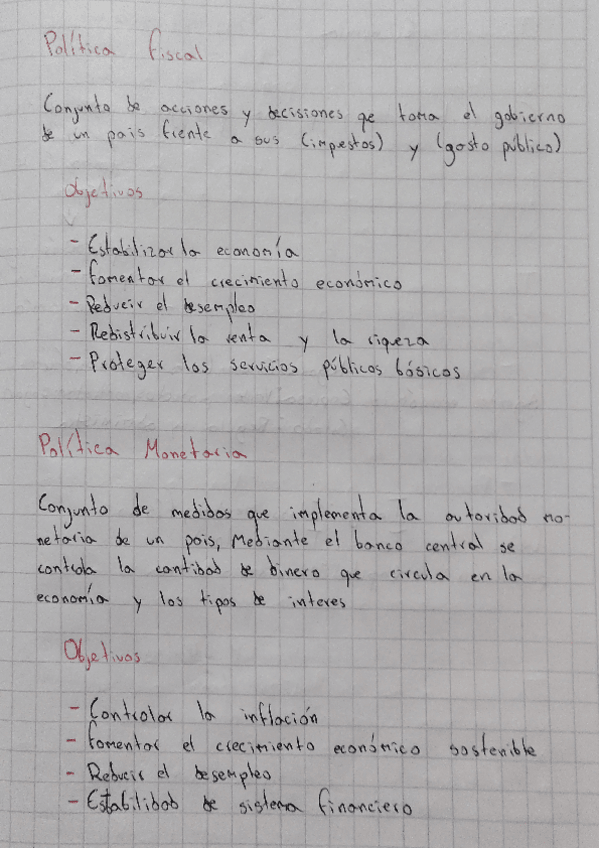 Política fiscal
Conjunto de acciones y decisiones qe toma el gobierno
de un pais frente a sus (impestos) y (gasto publico)
Objetivos
- Estabilizar la economía
- Fomentar el crecimiento económico
- Reducir el desempleo
- Redistribuir la renta y la riqueza
- Proteger los servicios públicos básicos
Política Monetaria
Conjunto de medidas que implementa la autoridad mo-
netaria de un pais, Mediante el banco central se
controla la cantidad de dinero que circula en la
economía y los tipos de interes
Objetivos
- Controlar la inflación
- Fomentar el crecimiento económico sostenible
- Reducir el desempleo
- Estabilidad de sistema financiero